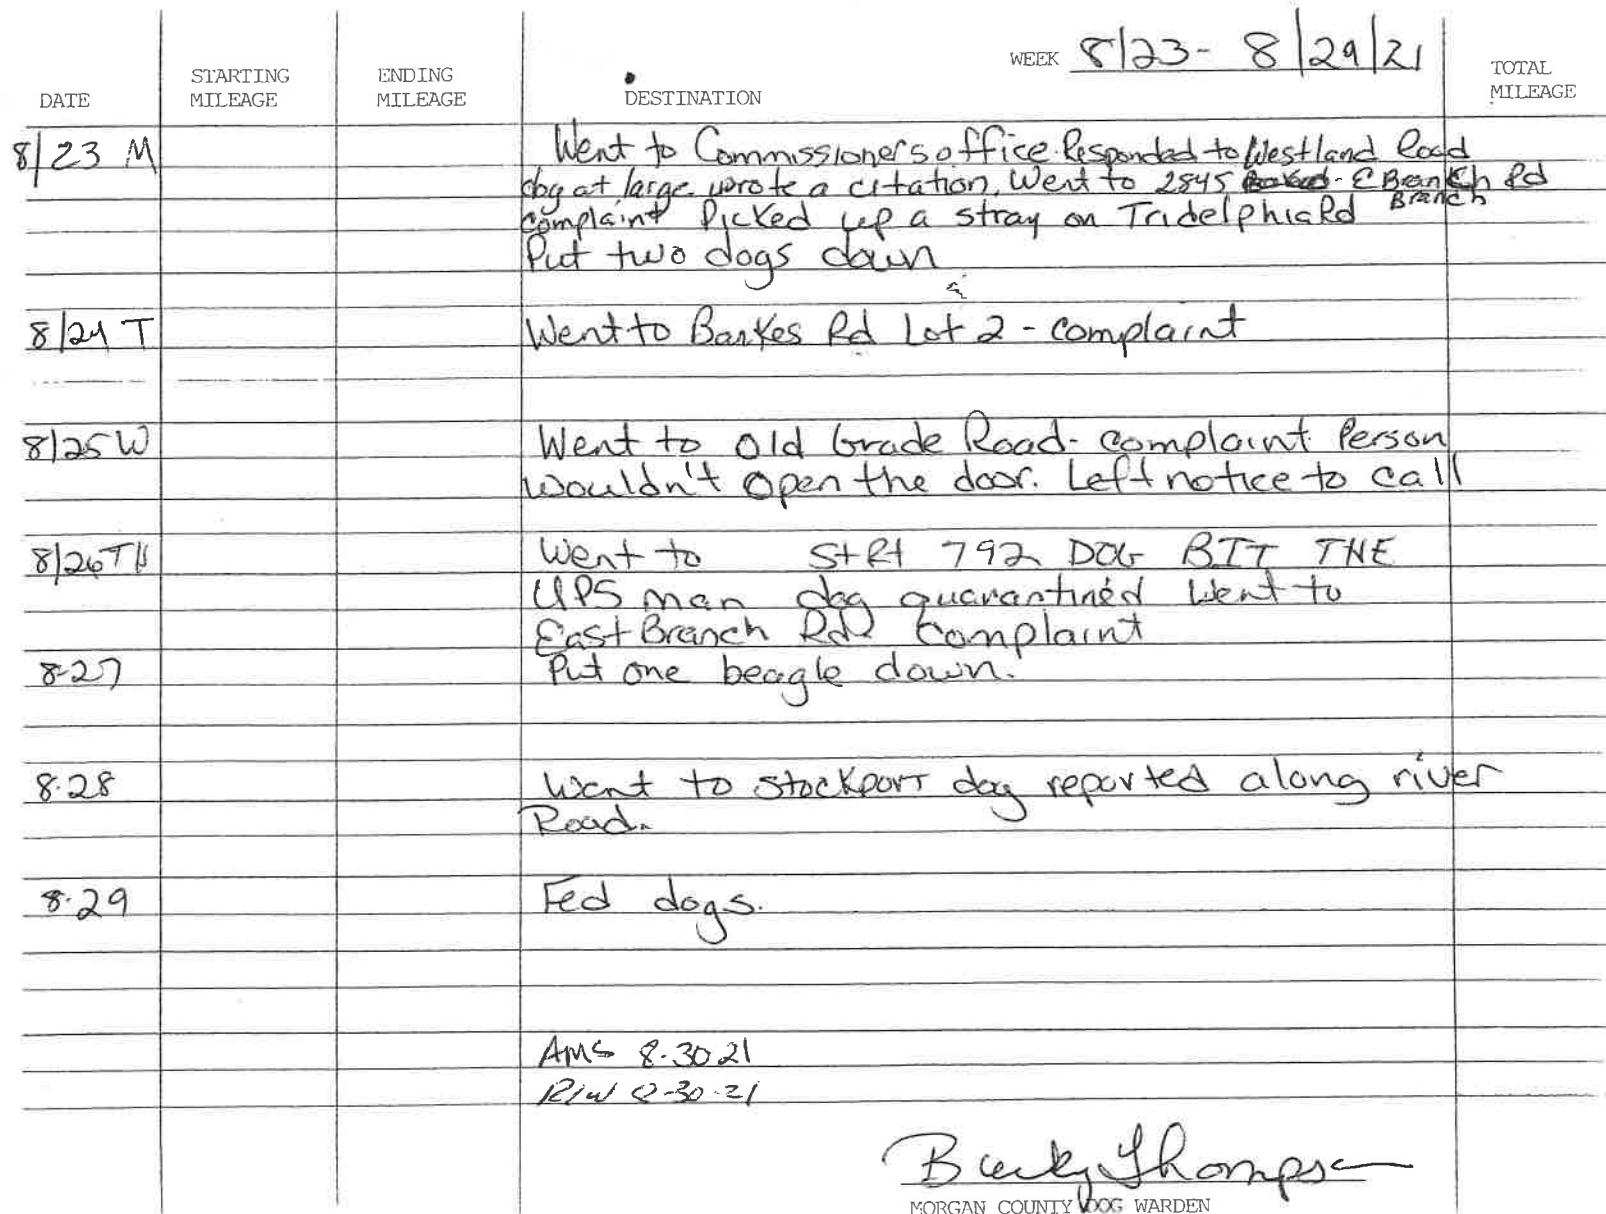 WEEK 8/23- 8/29/21
DATE STARTING MILEAGE ENDING MILEAGE DESTINATION TOTAL MILEAGE
8/23 M Went to Commissioners office. Responded to Westland Road
dog at large. wrote a citation. Went to 2845 E Branch Rd
Branch
complaint Picked up a stray on Tridelphia Rd
Put two dogs down
8/24 T Went to Barkes Rd Lot 2 - complaint
8/25 W Went to Old Grade Road- complaint. Person
wouldn't open the door. Left notice to call
8/26 TH Went to St Rt 792 DOG BIT THE
UPS man dog quarantined Went to
East Branch Rd complaint
8-27 Put one beagle down.
8.28 Went to Stockport dog reported along river
Road.
8.29 Fed dogs.
AMS 8.30 21
8-30-21
Becky Thompson
MORGAN COUNTY DOG WARDEN